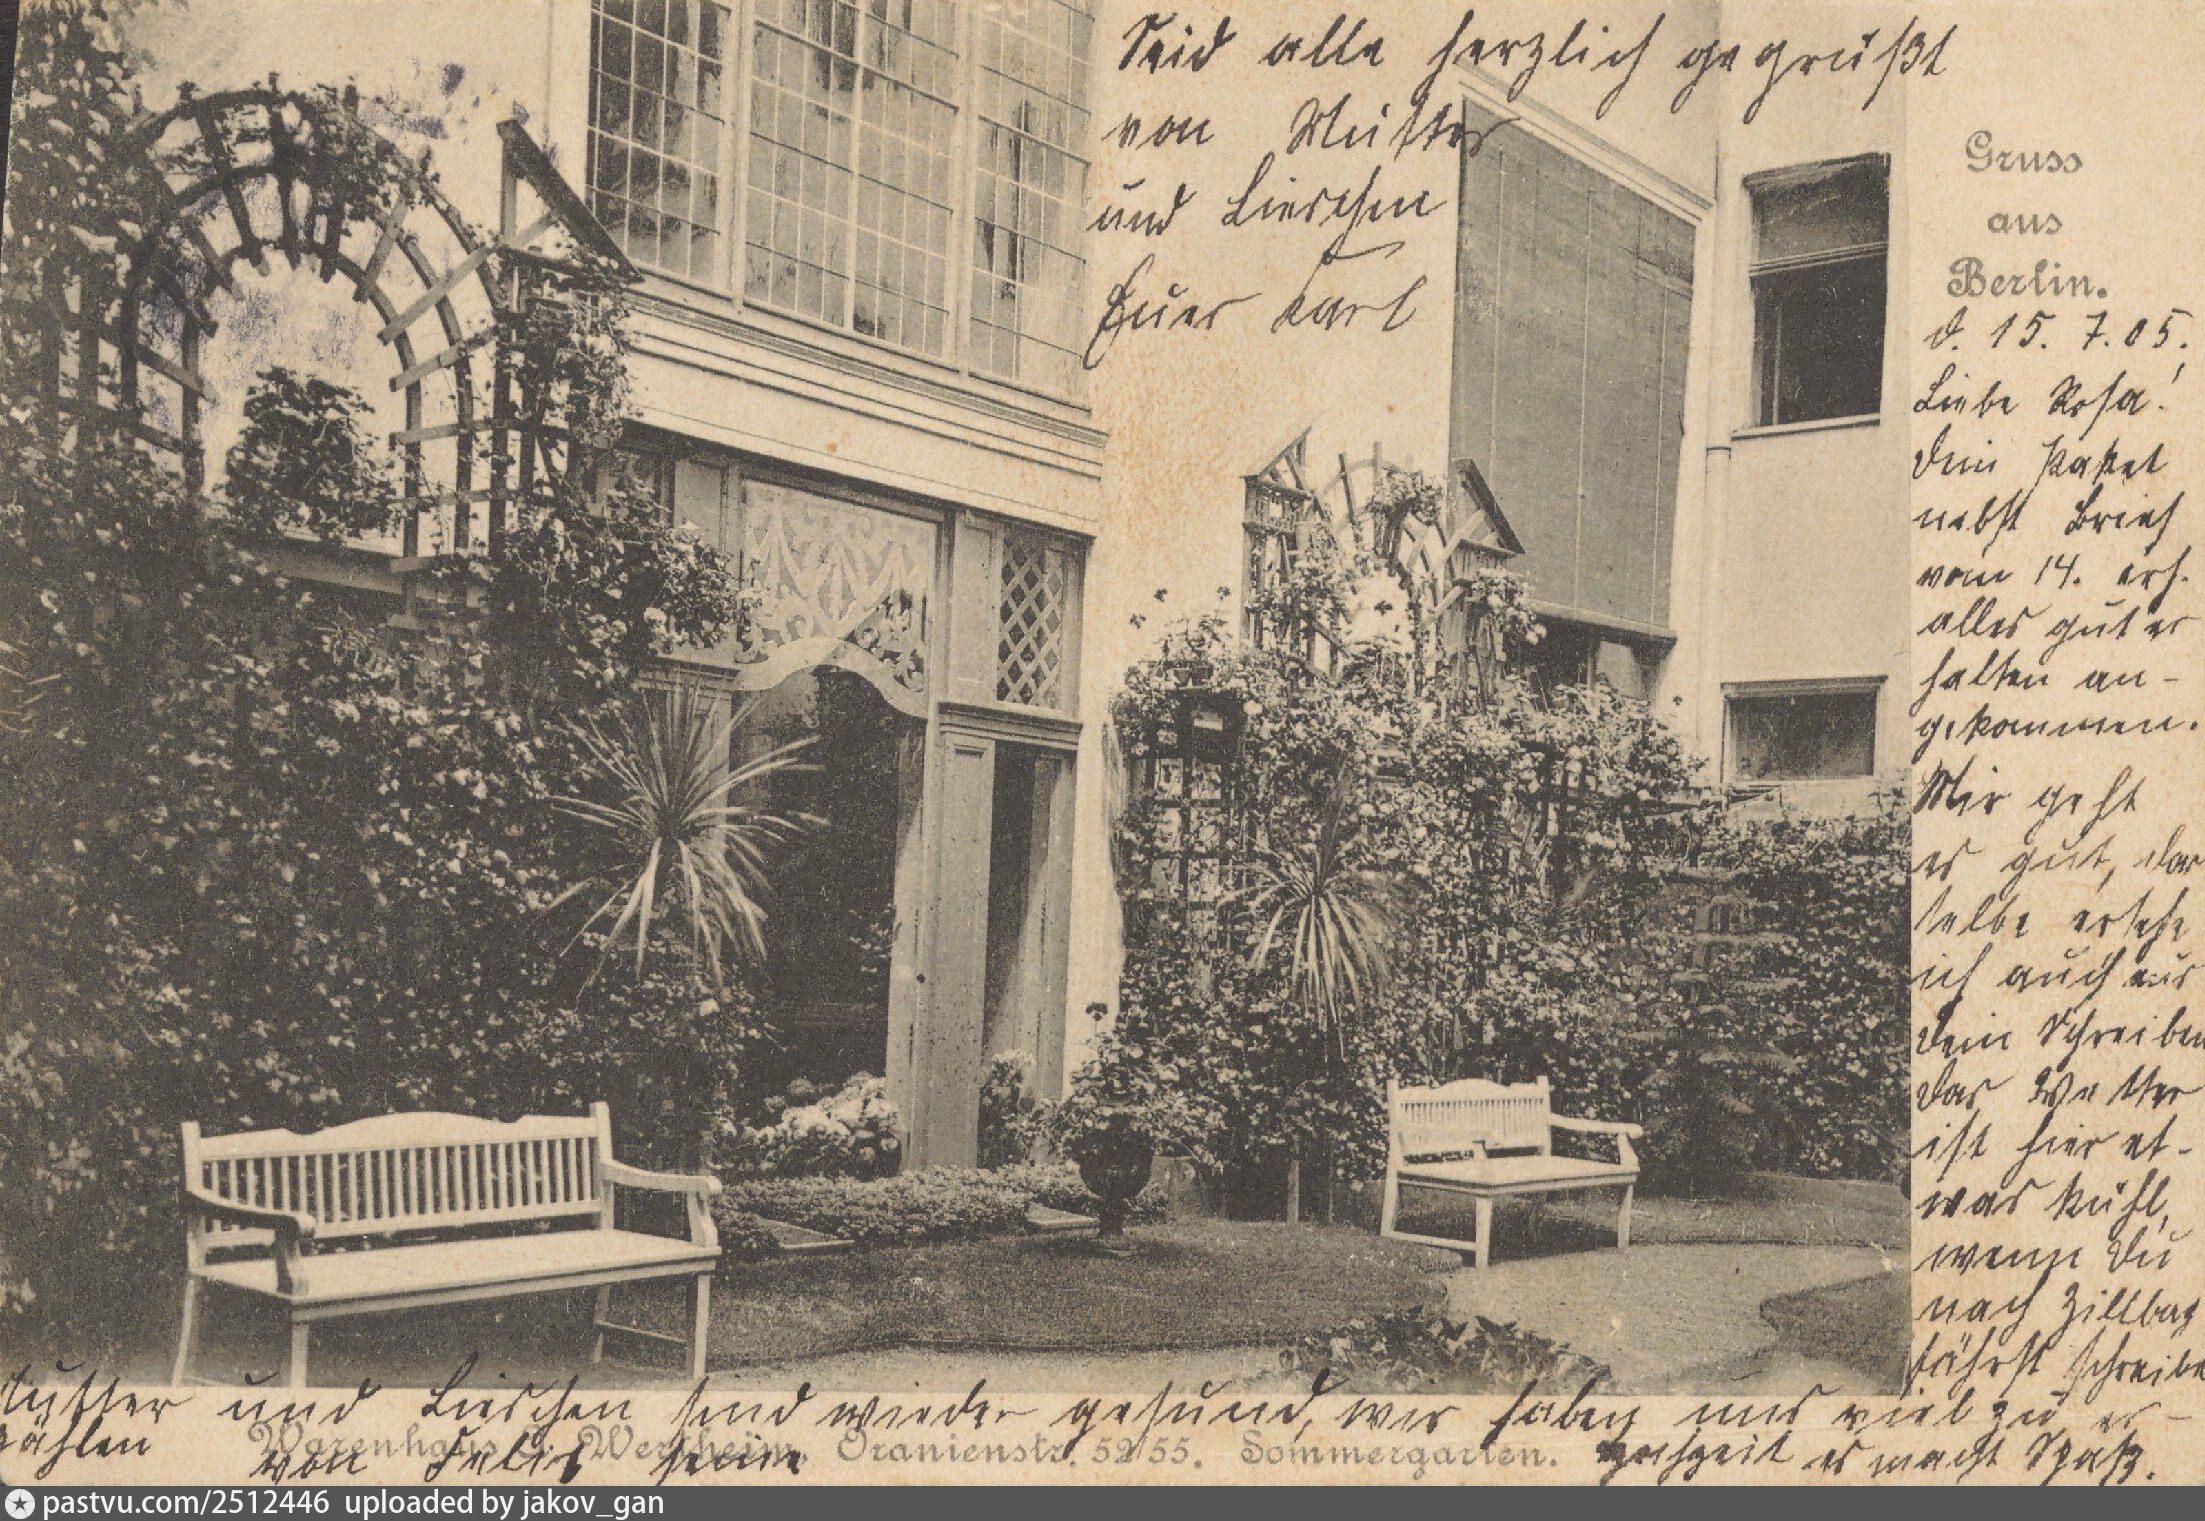 Seid alle herzlich gegrüßt
von Mutter
und Lieschen
Euer Karl
Gruss
aus
Berlin.
d. 15. 7. 05.
Liebe Rosa!
Dein Paket
nebst Brief
vom 14. erh.
alles gut er
halten an-
gekommen.
Mir geht
es gut, das
selbe ersehe
ich auch aus
Dein Schreiben
das Wetter
ist hier et-
was kühl,
wenn Du
nach
fährst schreibe
Mutter und Lieschen sind wieder gesund, wir haben uns viel zu er-
zählen von seine Hochzeit es macht Spaß.
Warenhaus A. Wertheim, Oranienstr. 52/55. Sommergarten.
pastvu.com/2512446 uploaded by jakov_gan